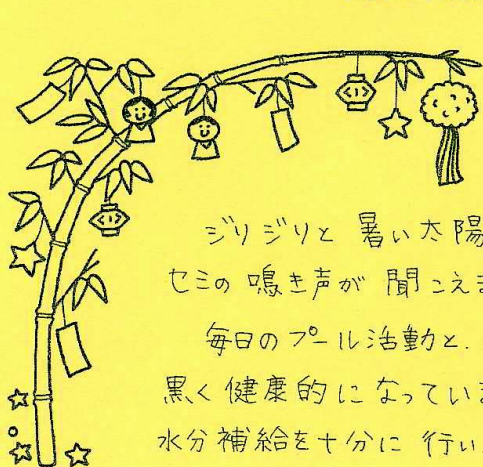 ジリジリと 暑い太陽
セミの 鳴き声が 聞こえま
毎日のプール活動と、
黒く健康的になっていま
水分補給を十分に 行い、